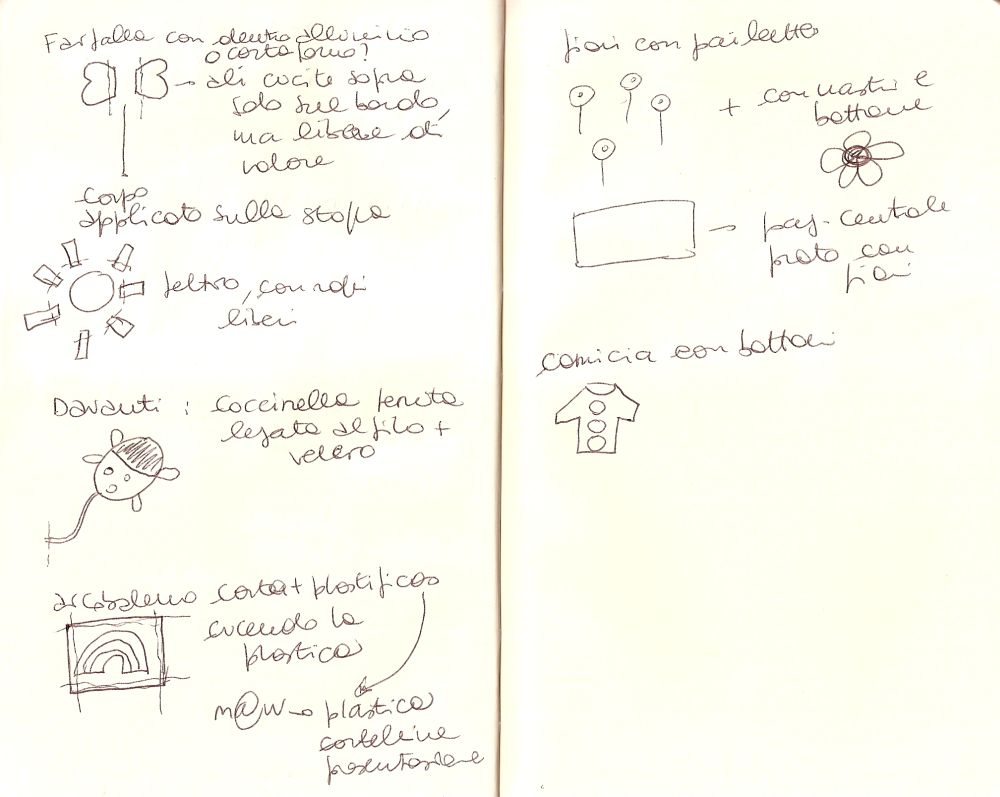 Farfalla con dentro alluminio
o carta forno?
ali cucite sopra
solo sul bordo,
ma libere di
volare
corpo
applicato sulla stoffa
feltro, con raggi
liberi
Davanti : coccinella tenuta
legata al filo +
velcro
arcobaleno carta + plastifico
cucendo la
plastica
m@w → plastica
cartelline
presentazione
fiori con paillette
+ con nastri e
bottone
→ pag. centrale
prato con
fiori
camicia con bottoni